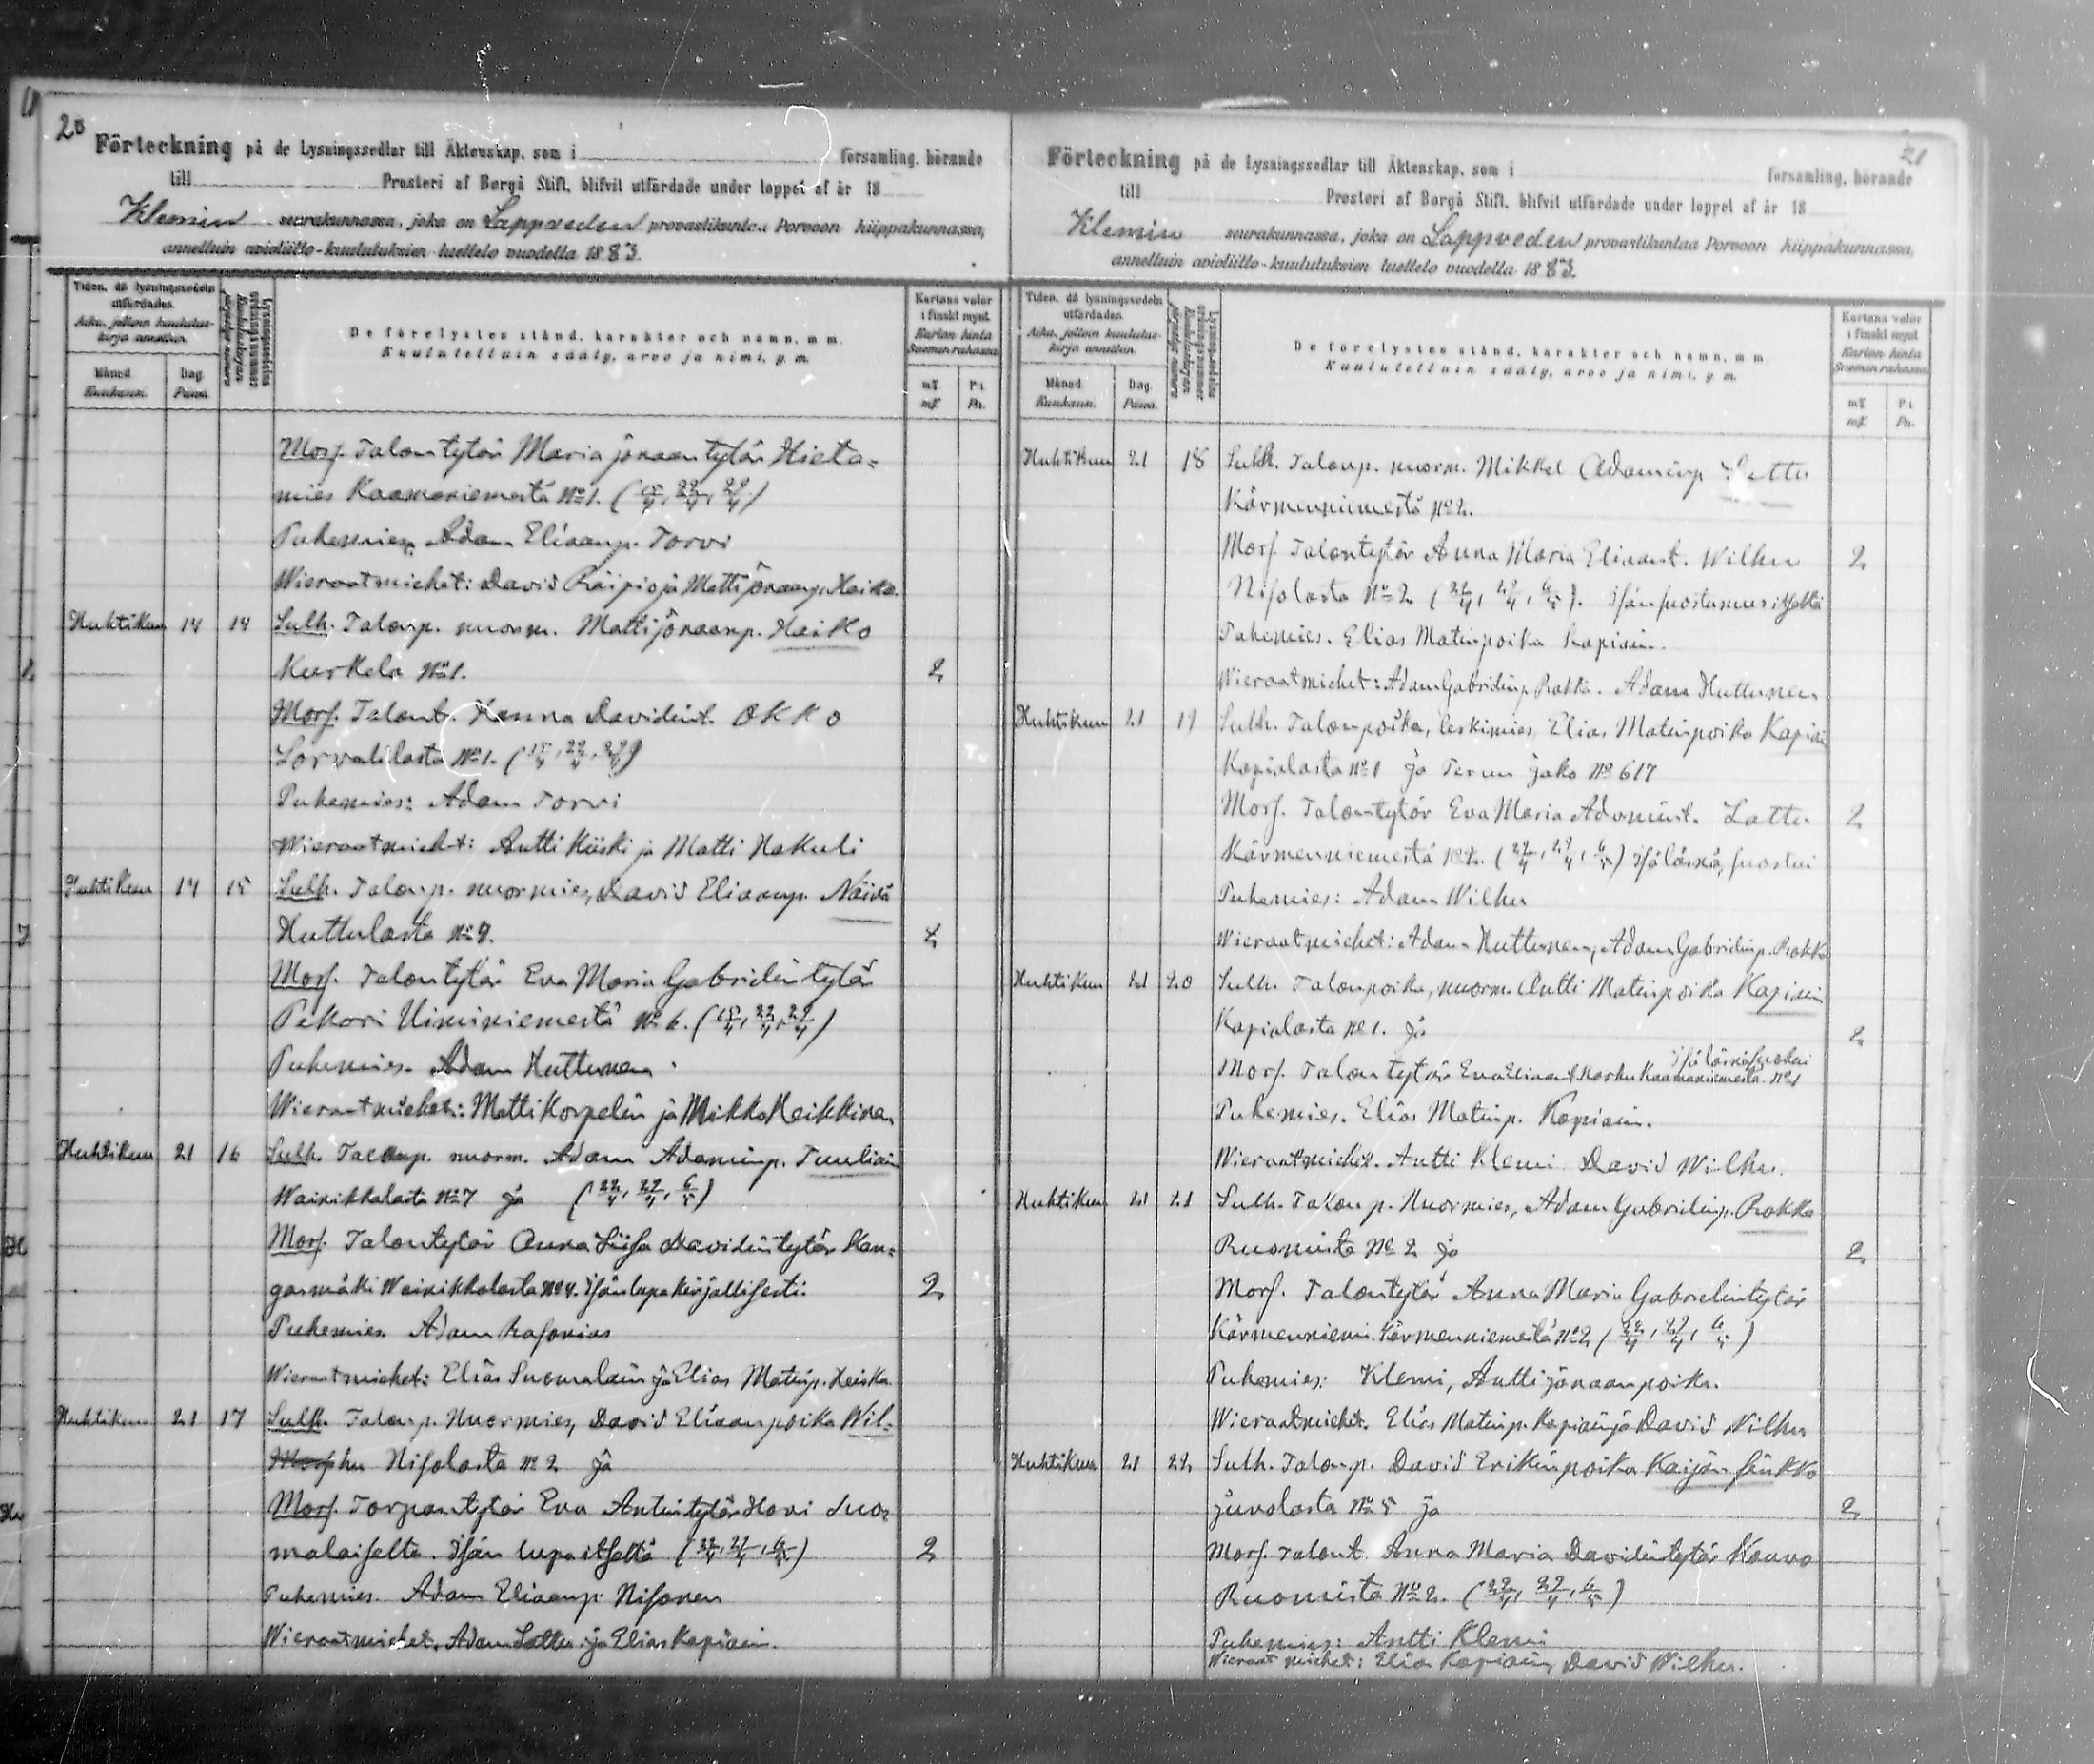 20
Förteckning på de Lysningssedlar till Äktenskap, som i församling, hörande
till Prosteri af Borgå Stift, blifvit utfärdade under loppet af år 18
Klemin seurakunnassa, joka on Lappveden provastikuntaa Porvoon hiippakunnassa,
annettuin avioliitto-kuulutuksien luettelo vuodella 1883.
Tiden, då lysningssedeln utfärdades.
Aika, jolloin kuulutuskirja annettiin.
Månad Kuukausi.
Dag. Päivä.
Lysningssedelns ordningsnummer
Kuulutuskirjan järjestys-numero
De förelystes stånd, karakter och namn, m. m.
Kuulutettuin sääty, arvo ja nimi, y. m.
Kartans valör i finskt mynt.
Kartan hinta Suomen rahassa.
mf. mf.
P:i Pn.
Morf. Talontytär Maria Jönaantytär Hieta-
mies Kaamaniemestä No 1. (15/4, 22/4, 29/4)
Puhemies, Adam Eliaanp. Torvi
Wieraatmiehet: David Räipio ja Matti Jönaanp. Haiko.
Huhtikuu 14 14 Sulh. Talonp. nuorm. Matti Jönaanp. Haiko
Kurkela No 1. 2
Morf. Talont. Hanna Davidint. Okko
Lorvalilasta No 1. (15/4, 22/4, 29/4)
Puhemies: Adam Torvi
Wieraatmiehet: Antti Kiiski ja Matti Hakuli
Huhtikuu 14 15 Sulh. Talonp. nuormies, David Eliaanp. Näivä
Huttulasta No 4. 2
Morf. Talontytär Eva Maria Gabrielintytär
Pekori Uiminiemestä No 6. (15/4, 22/4, 29/4)
Puhemies. Adam Huttunen
Wieraatmiehet: Matti Korpelin ja Mikko Heikkinen
Huhtikuu 21 16 Sulh. Talonp. nuorm. Adam Adaminp. Tuuliain
Wainikkalasta No 7 ja (22/4, 29/4, 6/5)
Morf. Talontytär Anna Liisa Davidintytär Kan-
gasmäki Wainikkalasta No 4. Isän lupa kirjallisesti. 2
Puhemies. Adam Rasonias
Wieraatmiehet: Elias Suomalain ja Elias Matinp. Heiska.
Huhtikuu 21 17 Sulh. Talonp. Nuormies, David Eliaanpoika Wil-
hu Nisolasta No 2 ja
Morf. Torpantytär Eva Antintytär Hovi Suo-
malaiselta. Isän lupa itseltä (22/4, 29/4, 6/5) 2
Puhemies. Adam Eliaanp. Nisonen
Wieraatmiehet, Adam Lattu ja Elias Kapiain.
21
Förteckning på de Lysningssedlar till Äktenskap, som i församling, hörande
till Prosteri af Borgå Stift, blifvit utfärdade under loppet af år 18
Klemin seurakunnassa, joka on Lappveden provastikuntaa Porvoon hiippakunnassa,
annettuin avioliitto-kuulutuksien luettelo vuodella 1883.
Tiden, då lysningssedeln utfärdades.
Aika, jolloin kuulutuskirja annettiin.
Månad Kuukausi.
Dag. Päivä.
Lysningssedelns ordningsnummer
Kuulutuskirjan järjestys-numero
De förelystes stånd, karakter och namn, m. m.
Kuulutettuin sääty, arvo ja nimi, y. m.
Kartans valör i finskt mynt.
Kartan hinta Suomen rahassa.
mf. mf.
P:i Pn.
Huhtikuu 21 18 Sulh. Talonp. nuorm. Mikkel Adaminp Lattu
Kärmenniemestä No 2.
Morf. Talontytär Anna Maria Eliaant. Wilhu 2
Nisolasta No 2 (22/4, 29/4, 6/5). Isän suostumus itseltä
Puhemies. Elias Matinpoika Kapiain.
Wieraatmiehet: Adam Gabrielinp. Rokka. Adam Huttunen
Huhtikuu 21 19 Sulh. Talonpoika, leskimies, Elias Matinpoika Kapiai
Kapialasta No 1 ja Perun jako No 617
Morf. Talontytär Eva Maria Adamint. Lattu 2
Kärmenniemestä No 2. (22/4, 29/4, 6/5) Isä läsnä, suostui
Puhemies: Adam Wilhu
Wieraatmiehet: Adam Huttunen, Adam Gabrielinp. Rokka
Huhtikuu 21 20 Sulh. Talonpoika, nuorm. Antti Matinpoika Kapiain
Kapialasta No 1. ja 2
Isä läsnä suostui
Morf. Talontytär Eva Eliaant. Karhu Kaamaniemestä No 1
Puhemies. Elias Matinp. Kapiain.
Wieraatmiehet. Antti Klemi David Wilhu.
Huhtikuu 21 21 Sulh. Talonp. Nuormies, Adam Gabrielinp. Rokka
Ruomista No 2 ja 2
Morf. Talontytär Anna Maria Gabrielintytär
Kärmenniemi Kärmenniemestä No 2 (22/4, 29/4, 6/5)
Puhemies: Klemi, Antti Jönaanpoika.
Wieraatmiehet. Elias Matinp. Kapiain ja David Wilhu
Huhtikuu 21 22 Sulh. Talonp. David Erikinpoika Kaijansinkko
Juvolasta No 5 ja 2
Morf. Talont. Anna Maria Davidintytär Kouvo
Ruomista No 2. (22/4, 29/4, 6/5)
Puhemies: Antti Klemi
Wieraat miehet: Elias Kapiain, David Wilhu.